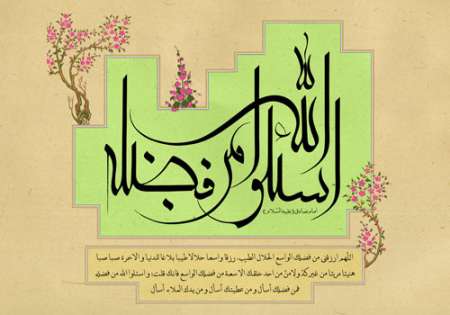 اسئلوا الله من فضله
امام صادق (علیه السلام)
اللهم ارزقنی من فضلك الواسع الحلال الطیب، رزقا واسعا حلالا طیبا بلاغا للدنیا و الآخرة صبا صبا
هنیئا مریئا من غیر كد ولا من من احد خلقك الا سعة من فضلك الواسع فانك قلت: و اسئلوا الله من فضله
فمن فضلك أسأل و من عطیتك أسأل و من یدك الملاء أسأل